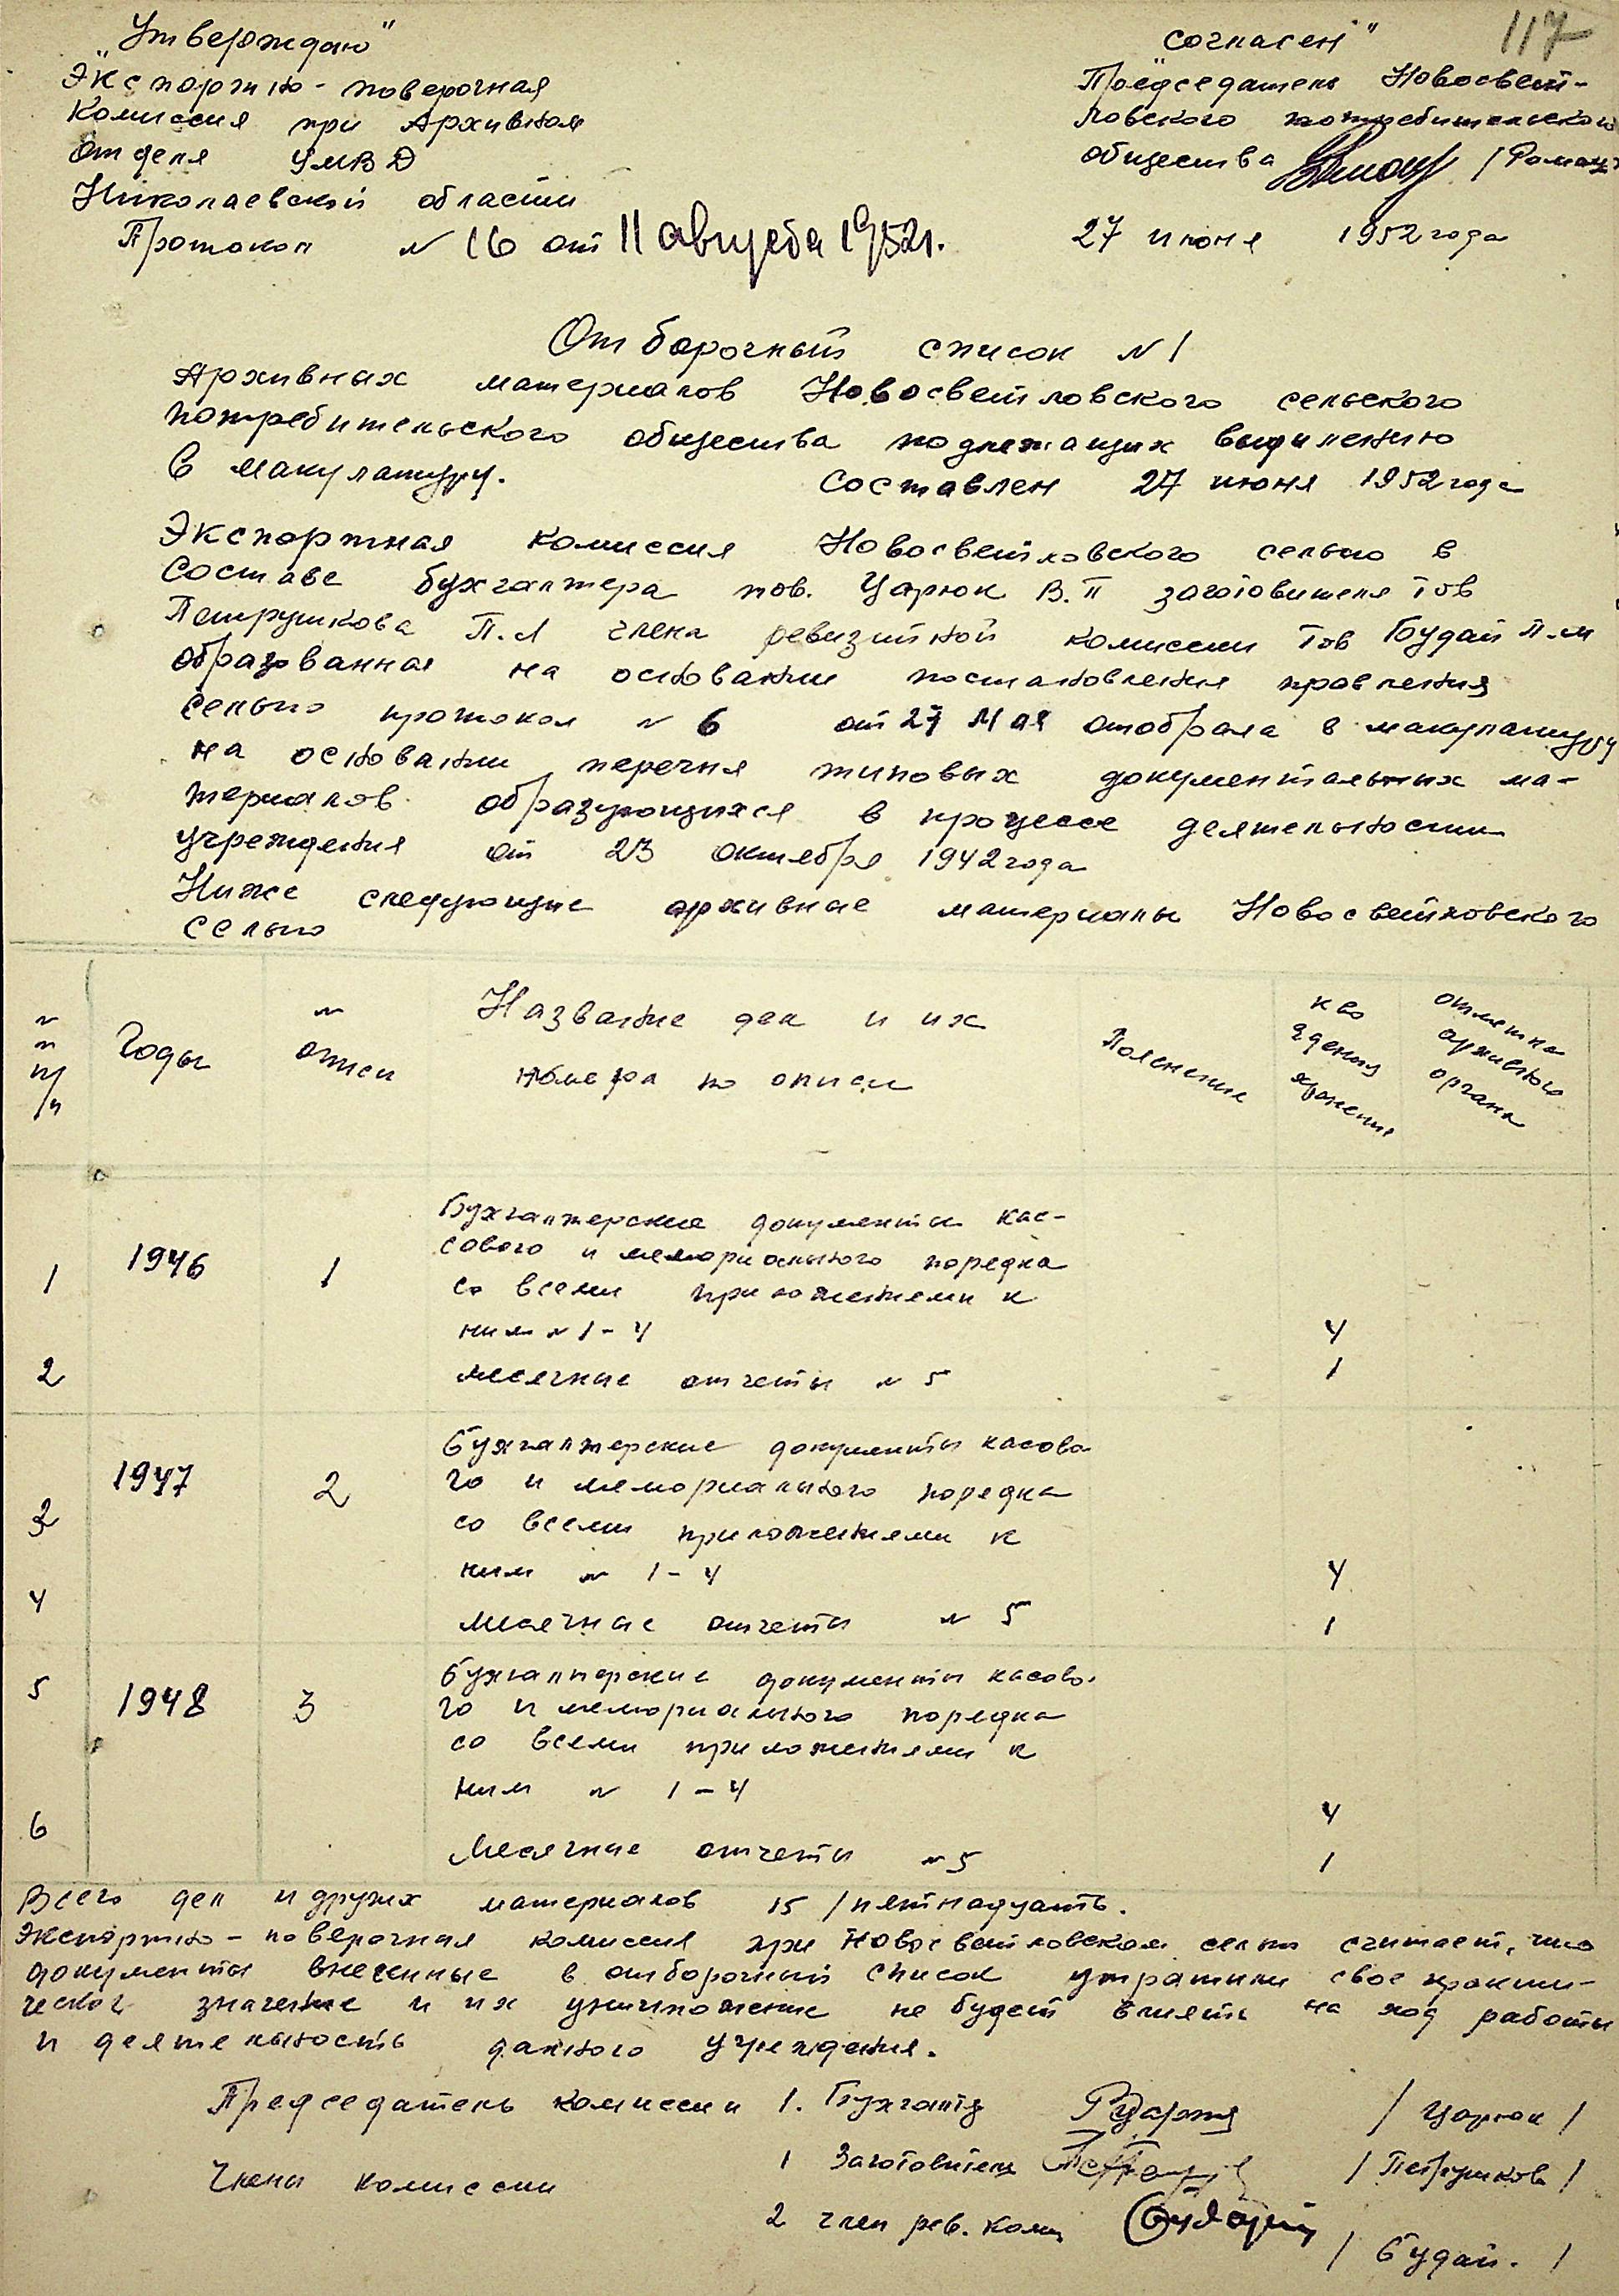 „Утверждаю"
Экспортно-поверочная
Комиссия при Архивном
Отделе УМВД
Николаевской области
Протокол N 16 от 11 августа 1952 г.
117
„согласен"
Председатель Новосвет-
ловского потребительского
общества /Роман
27 июня 1952 года
Отборочный список N 1
Архивных материалов Новосветловского сельского
потребительского общества подлежащих выделению
в макулатуру. Составлен 27 июня 1952 года
Экспортная комиссия Новосветловского сельпо в
Составе бухгалтера тов. Царюк В.П заготовителя тов
Петрушкова П.Л члена ревизийной комиссии тов Будай П.М
образованная на основании постановления правления
сельпо протокол N 6 от 27 Мая отобрала в макулатуру
на основании перечня типовых документальных ма-
териалов образующихся в процессе деятельности
учреждения от 23 октября 1942 года
Ниже следующие архивные материалы Новосветловского
сельпо
N N п/п
Годы
N описи
Название дел и их
номера по описи
Пояснение
к во единиц хранения
отметка архивного органа
Бухгалтерские документы кас-
1 1946 1 сового и мемориального поредка
со всеми приложениеми к
ним N 1-4 4
2 месячные отчеты N 5 1
Бухгалтерские документы касово
1947 2 го и мемориального поредка
3 со всеми приложениями к
ним N 1-4 4
4 месячные отчеты N 5 1
5 Бухгалтерские документы касово-
1948 3 го и мемориального поредка
со всеми приложениями к
ним N 1-4 4
6 Месячные отчеты N 5 1
Всего дел и других материалов 15 /пятнадцать.
Экспортно-поверочная комиссия при Новосветловском сельпо считает, что
документы внесенные в отборочный список утратили свое практи-
ческое значение и их уничтожение не будет влиять на ход работы
и деятельность данного учреждения.
Председатель комиссии 1. Бухгалтер /Царюк/
Члены комиссии 1 Заготовитель /Петрушков/
2 член рев. комис Будай /Будай./